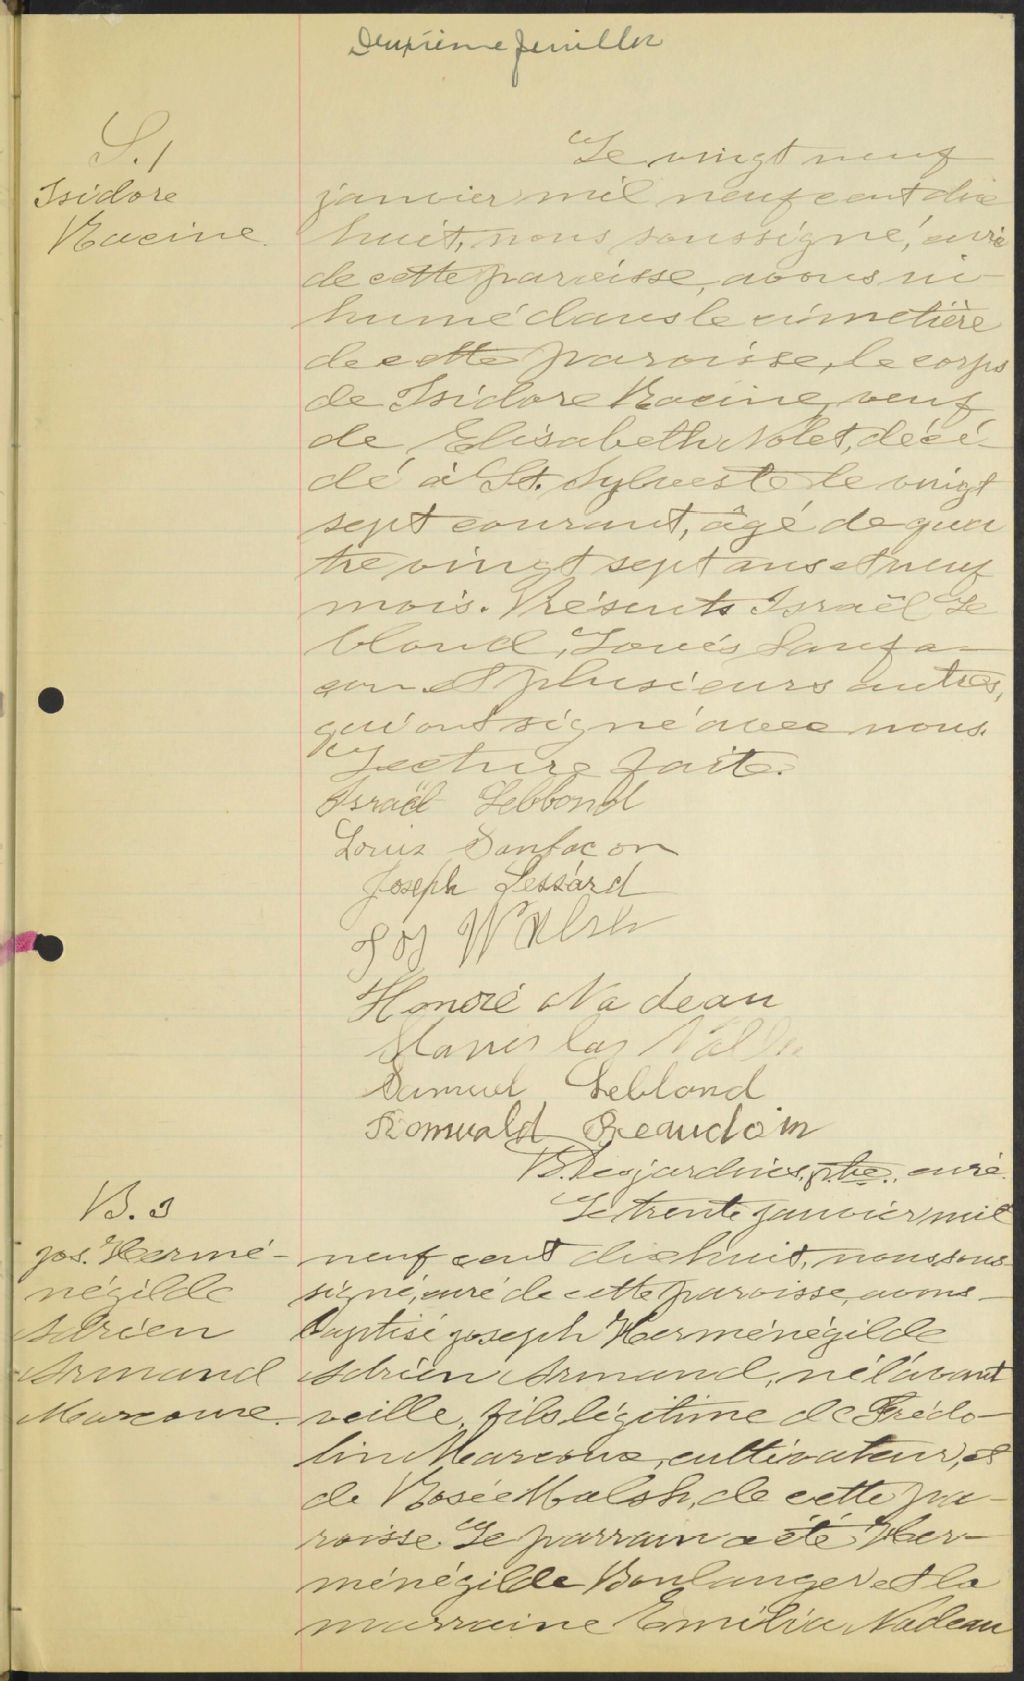 Deuxième feuillet
S. 1
Isidore
Racine.
Le vingt neuf
janvier mil neuf cent dix
huit, nous soussigné, curé
de cette paroisse, avons in-
humé dans le cimetière
de cette paroisse, le corps
de Isidore Racine, veuf
de Elisabeth Nolet, décé-
dé à St. Sylvestre le vingt
sept courant, âgé de qua
tre vingt sept ans et neuf
mois. Présents Israël Le
blond, Louis Sanfa-
çon et plusieurs autres,
qui ont signé avec nous.
Lecture faite.
Israël Lebbond
Louis Sanfacon
Joseph Lessard
Jos Walsh
Honoré Nadeau
Stanislas
Samuel Leblond
Romuald Beaudoin
B. Desjardins, ptre. curé.
B. 3
Jos. Hermé-
négilde
Adrien
Armand
Marcoux.
Le trente janvier mil
neuf cent dix huit, nous sous
signé, curé de cette paroisse, avons
baptisé Joseph Herménégilde
Adrien Armand, né l'avant
veille, fils légitime de Frédo-
lin Marcoux, cultivateur, et
de Rosée Walsh, de cette pa-
roisse. Le parrain a été Her-
ménégilde Boulanger et la
marraine Emilia Nadeau